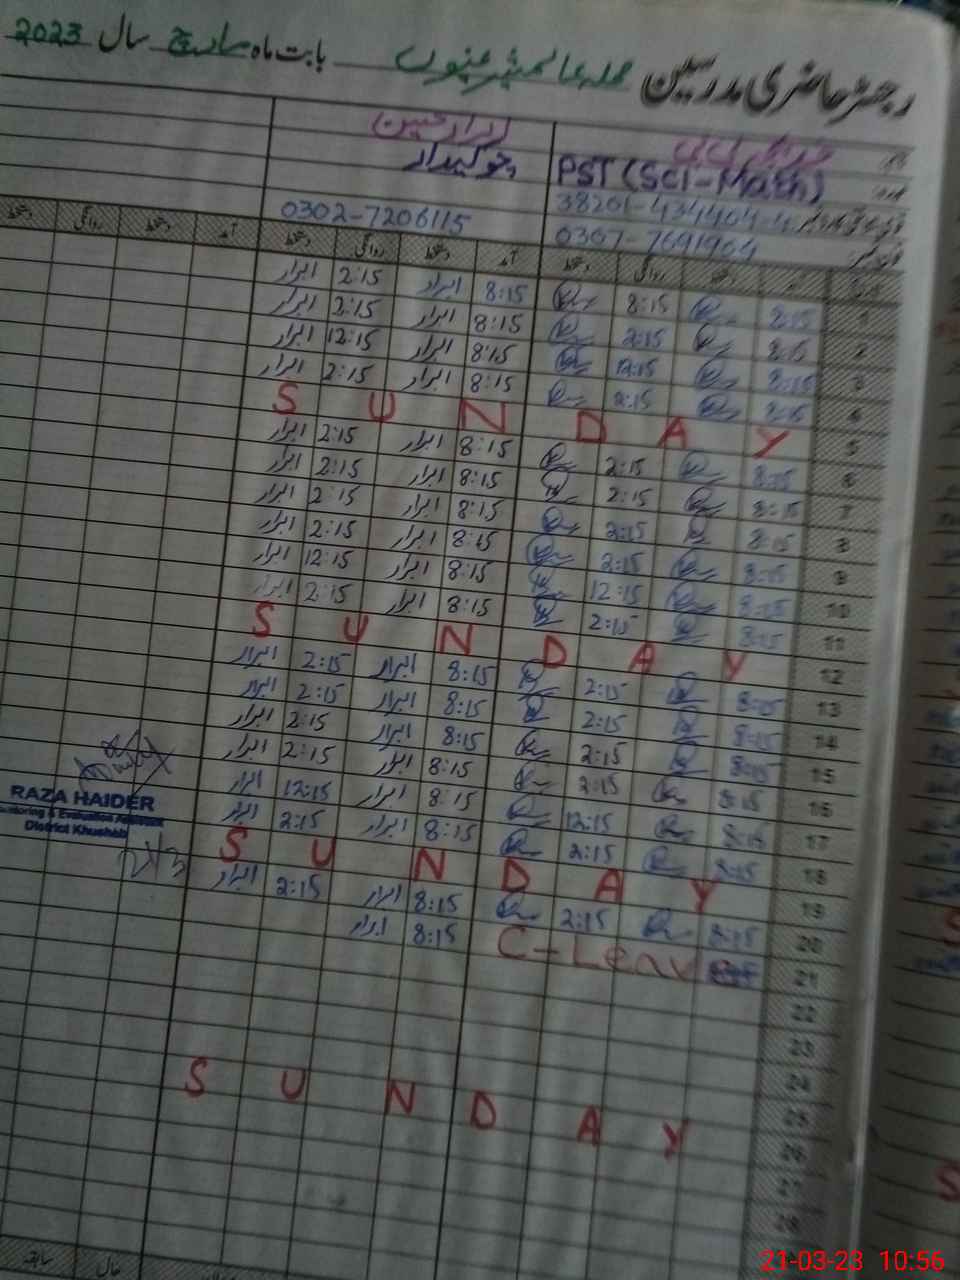 رجسٹر حاضری مدرسین بابت ماہ مارچ سال 2023
ابرار حسین
PST (Sci-Math) چوکیدار
0307-7691904 0302-7206115
دستخط روانگی دستخط آمد دستخط روانگی دستخط آمد
1 8:15 8:15 8:15 ابرار 2:15 ابرار
2 8:15 2:15 8:15 ابرار 2:15 ابرار
3 8:15 12:15 8:15 ابرار 12:15 ابرار
4 8:15 2:15 8:15 ابرار 2:15 ابرار
5 S U N D A Y
6 8:15 2:15 8:15 ابرار 2:15 ابرار
7 8:15 2:15 8:15 ابرار 2:15 ابرار
8 8:15 2:15 8:15 ابرار 2:15 ابرار
9 8:15 2:15 8:15 ابرار 2:15 ابرار
10 8:15 12:15 8:15 ابرار 12:15 ابرار
11 8:15 2:15 8:15 ابرار 2:15 ابرار
12 S U N D A Y
13 8:15 2:15 8:15 ابرار 2:15 ابرار
14 8:15 2:15 8:15 ابرار 2:15 ابرار
15 8:15 2:15 8:15 ابرار 2:15 ابرار
16 8:15 2:15 8:15 ابرار 2:15 ابرار
17 8:15 12:15 8:15 ابرار 12:15 ابرار
18 8:15 2:15 8:15 ابرار 2:15 ابرار
19 S U N D A Y
20 8:15 2:15 8:15 ابرار 2:15 ابرار
21 C-Leav 8:15 ابرار
22
23
24
25
26 S U N D A Y
27
28
RAZA HAIDER
Monitoring & Evaluation Assistant
District Khushab
سابقہ حال
21-03-23 10:56